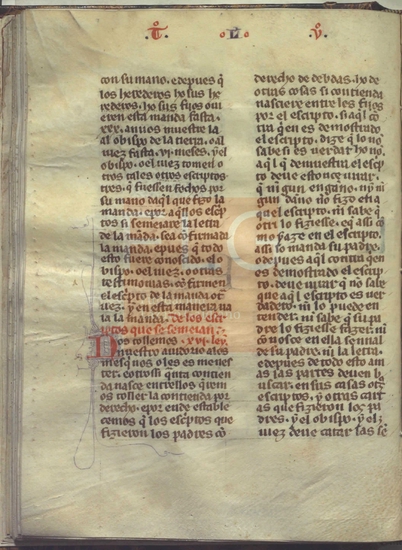 T L V
con su mano. e depues q̃
los herederos ho sus he
rederos. ho sus fijos ovi
eren esta manda fasta
al obispo de la tierra. o al
iuez fasta .vi. meses. y el
obispo. o el iuez tome .iii. o
tros tales otros escriptos
tres. q̃ fuessen fechos por
su mano daq̃l que fizo la
manda. e por aq̃llos escp̃
tos si semeiare la letra
de la mãda. sea cõfirmada
la manda. e pues q̃ todo
esto fuere connoscido. el o
bispo. o el iuez. o otras
testimonias. cõfirmen
el escp̃to de la manda ot̃
uez. y en esta manera ua
la la manda. de los escr
iptos que se semeian.
Dos tollemos .xvi. ley.
nuestro
mesq̃nos o les es menes
ter.
nasca entrellos q̃rem
os toller la contienda por
derecho. e por ende estable
cemos q̃ los escriptos que
fizieron los padres cõ
derecho de debdas. ho de
otras cosas si contienda
nasciere entre los fijos
por el escripto. si aq̃l cõ
tra q̃en es demostrado
el escripto. dize q̃ lo nõ
sabe si es verdat ho nõ.
aq̃l q̃ demuestra el escp̃
to deve estonce iurar.
q̃ ni gun enganno. ny ni
gun danno no fizo en a
q̃l escripto. ni sabe q̃
otri lo fiziesse. eq̃ assi cõ
mo yaze en el escripto.
assi lo manda su padre.
o depues aq̃l contra q̃en
es demostrado el escrip
to. deve iurar q̃ nõ sabe
que aq̃l escripto es ver
dadero. ni lo puede en
tender. ni sabe q̃ su pa
dre lo fiziesse fazer. ni
coñosce en ella sennal
de su padre. ni la letra.
e depues de todo esto am
as las partes deven b
uscar. en sus casas otõs
escriptos. y otras cart
as que fizieron los pa
dres. y el obispo. y el
iuez deve catar las se